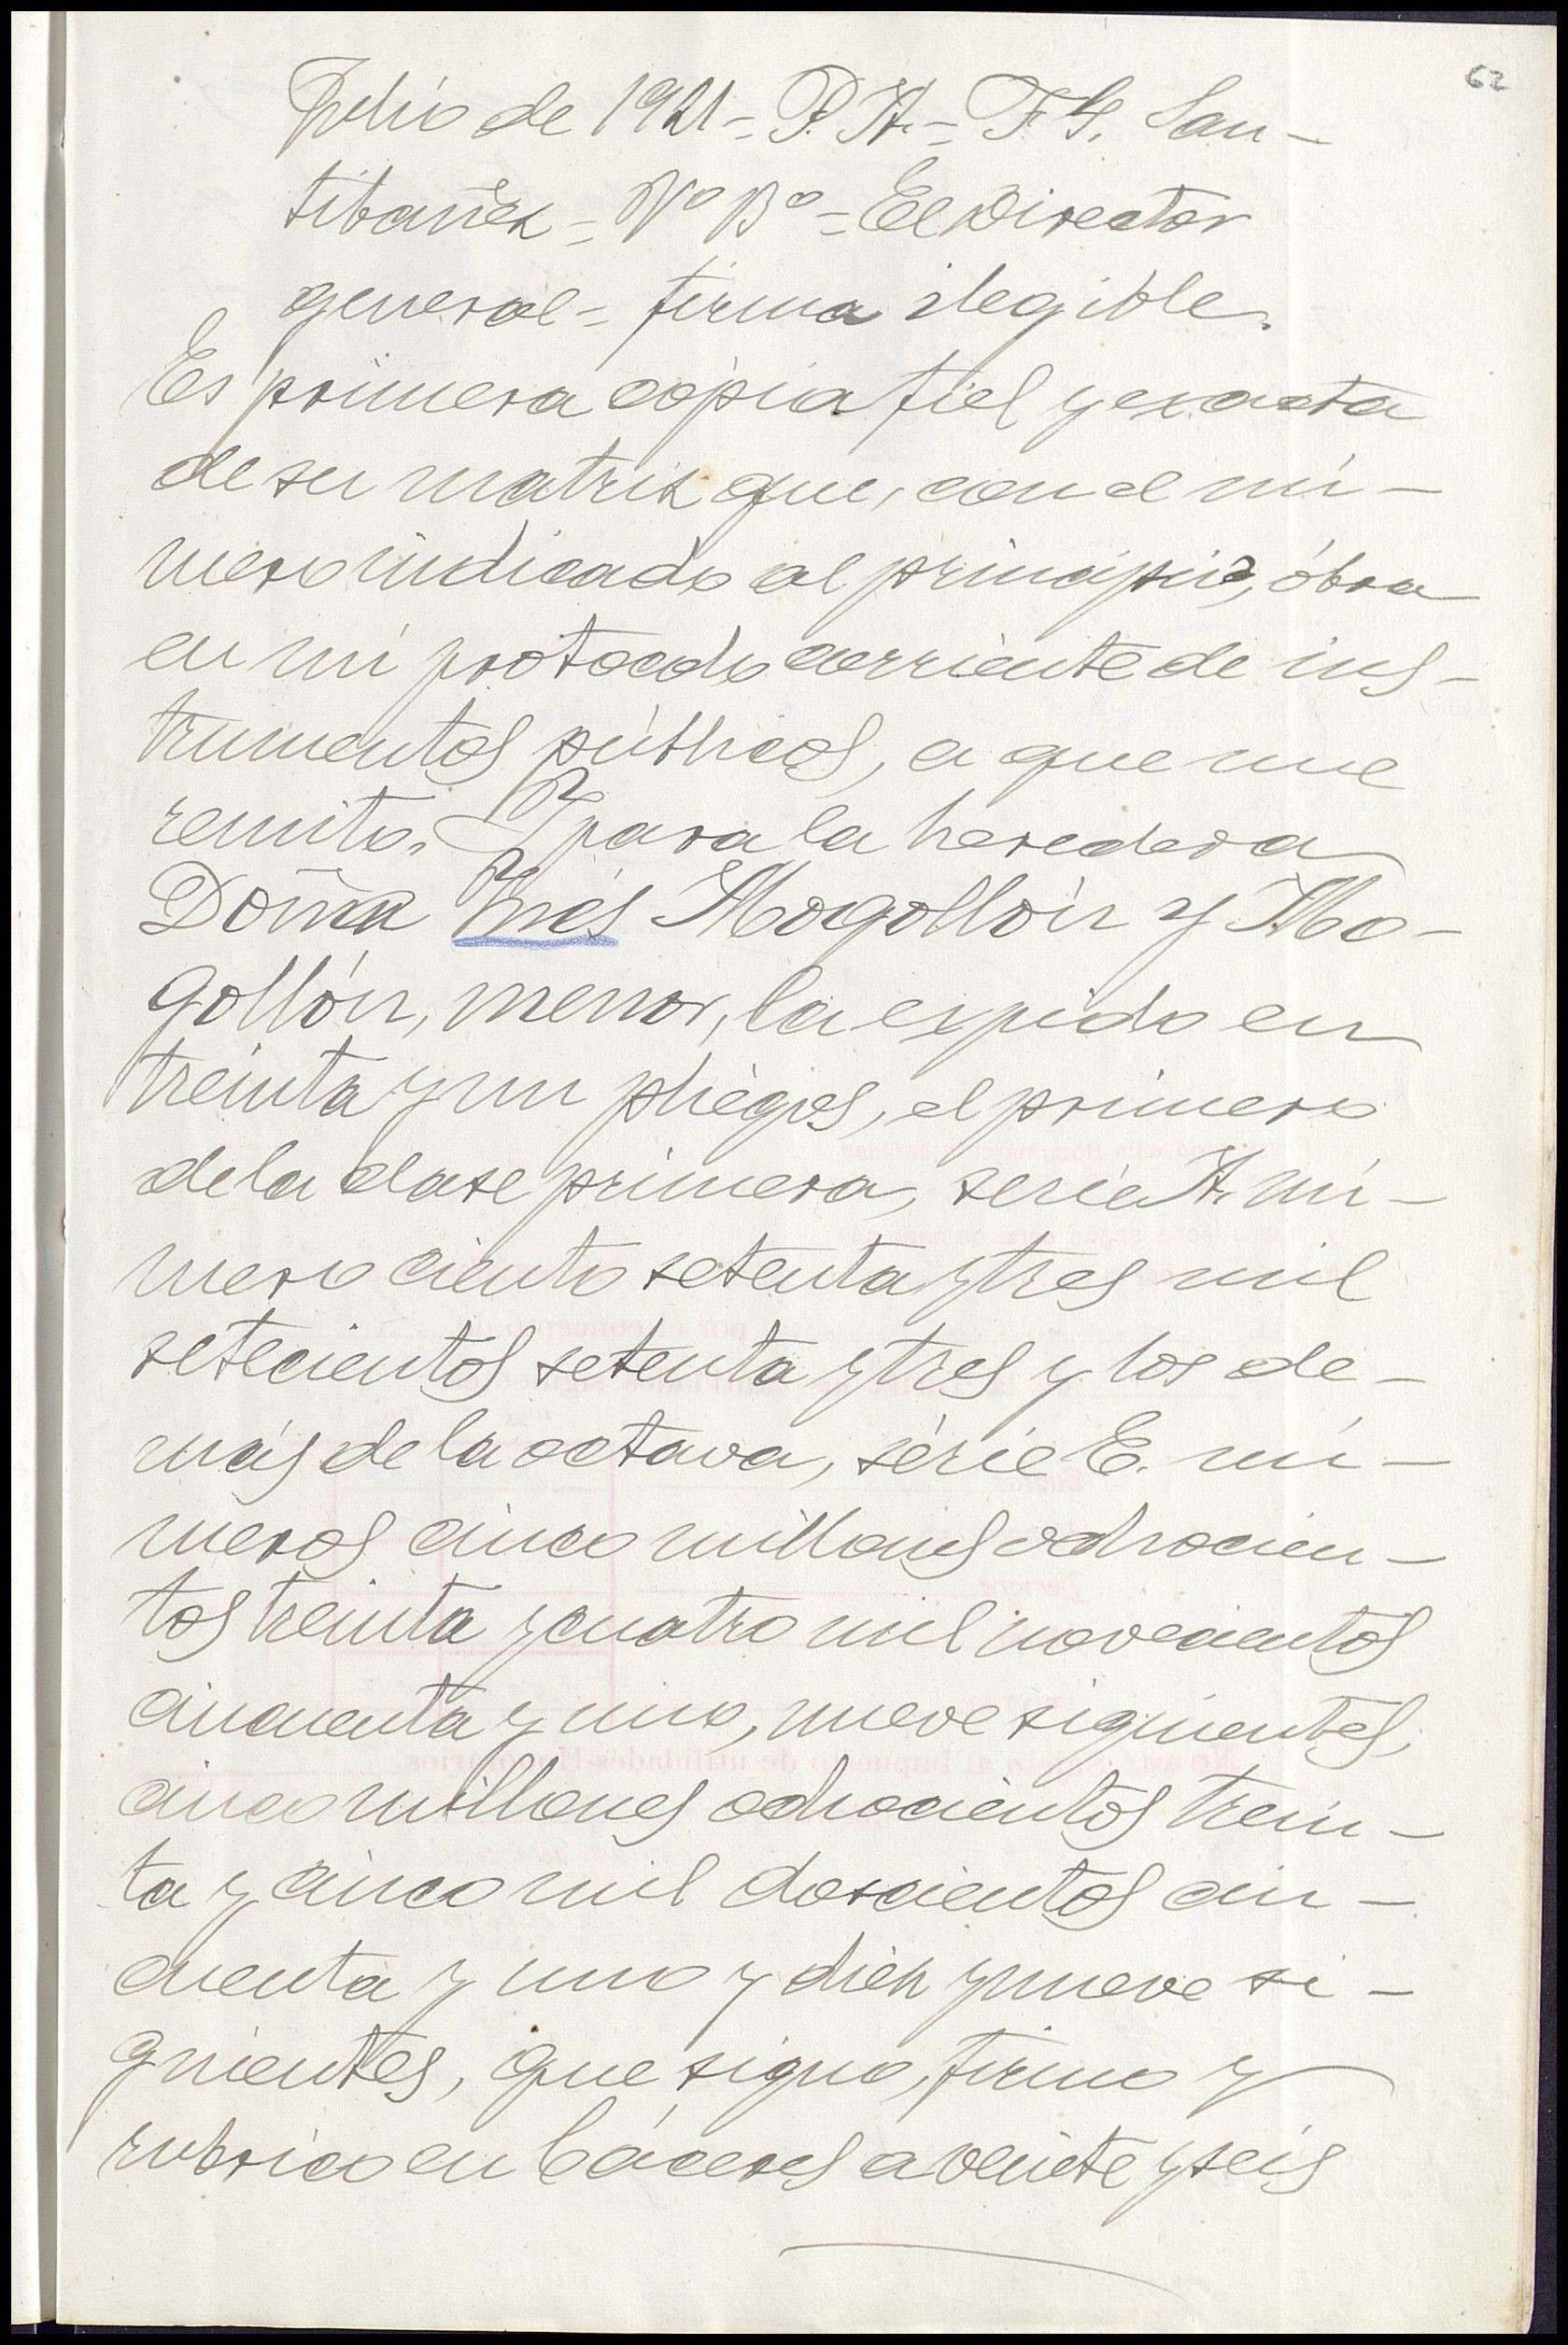 62
Julio de 1921 = P. A. = F. G. San-
tibañez = Vº Bº = El Director
general = firma ilegible.
Es primera copia fiel y exacta
de su matriz que, con el nú-
mero indicado al principio, óbra
en mi protocolo corriente de ins-
trumentos públicos, a que me
remito. Y para la heredera
Doña Inés Mogollón y Mo-
gollón, menor, la expido en
treinta y un pliegos, el primero
de la clase primera, serie A. nú-
mero ciento setenta y tres mil
setecientos setenta y tres y los de-
más de la octava, série E. nú-
meros cinco millones ochocien-
tos treinta y cuatro mil novecientos
cincuenta y uno, nueve siguientes,
cinco millones ochocientos trein-
ta y cinco mil doscientos cin-
cuenta y uno y diez y nueve si-
guientes, que signo, firmo y
rubrico en Cáceres a veinte y seis